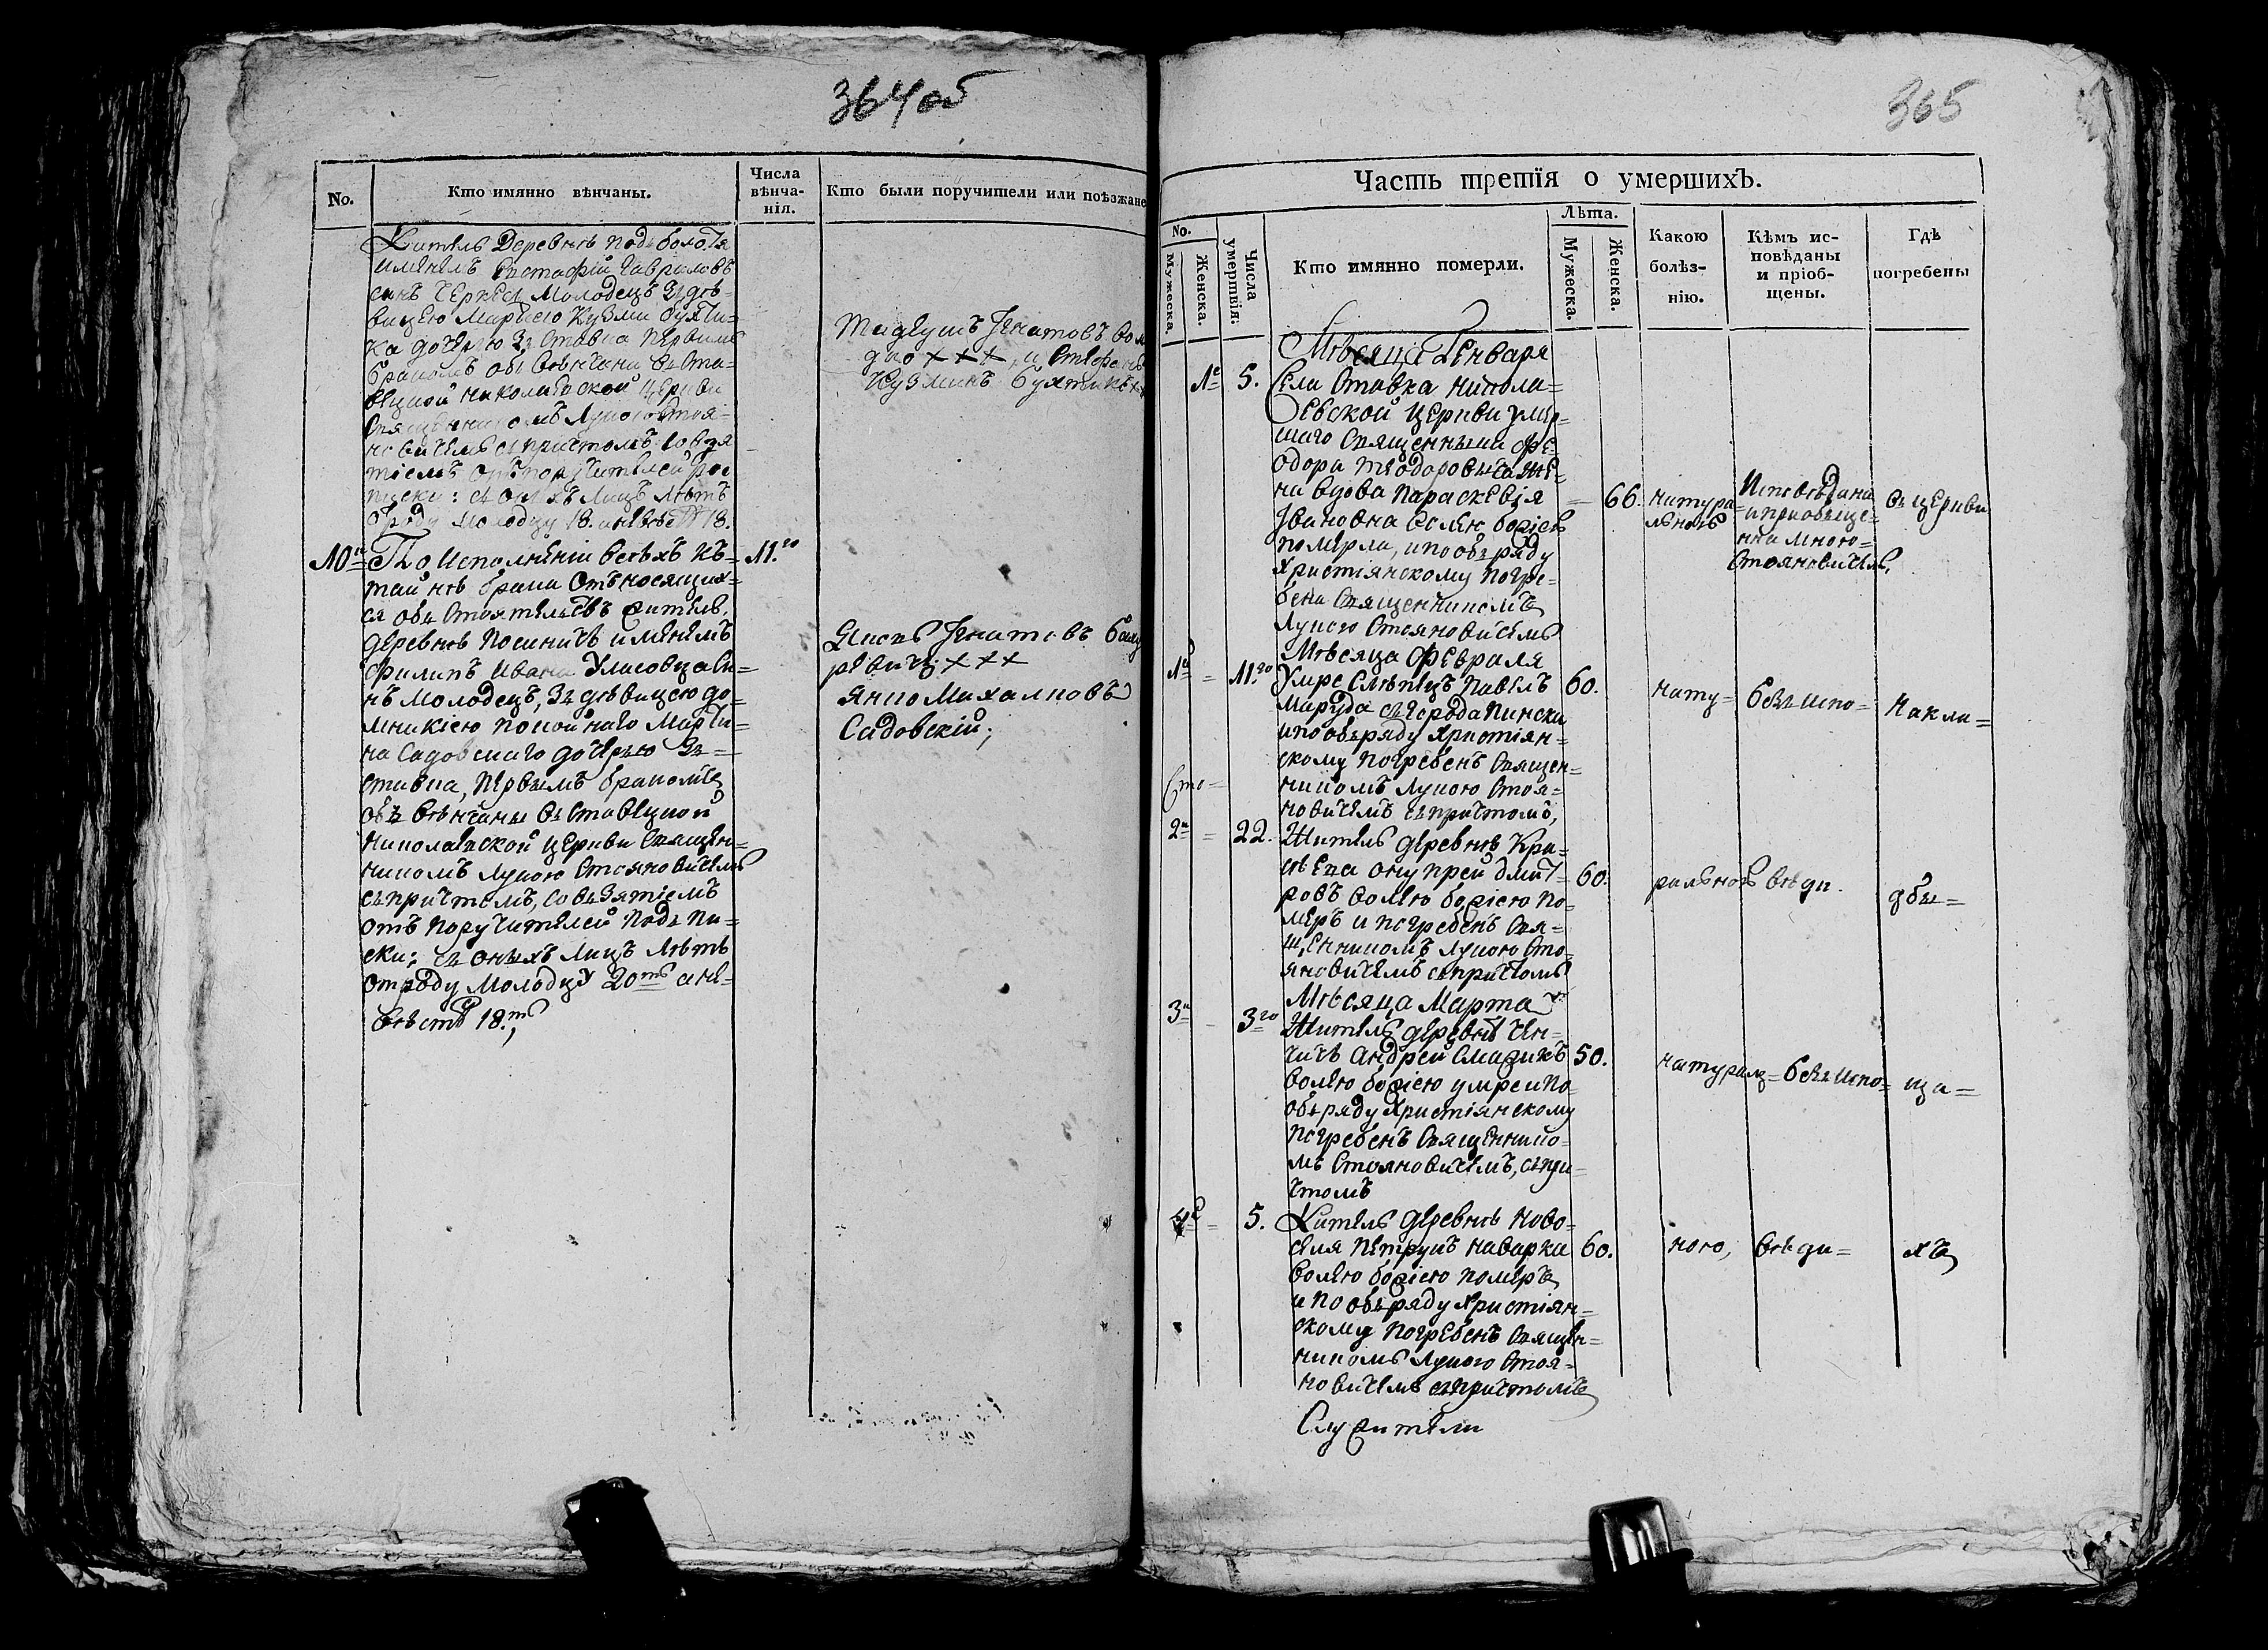 364 об
No.
Кто имянно вѣнчаны.
Числа вѣнча-нія.
Кто были поручители или поѣзжане
Житель Деревнѣ Подъболотя
именемъ Евстафій Гавриловъ
синъ Молодецъ Зъ дѣ-
вицею Маріею Кузми Бухти-
ка дочерю Зъ Ставка Первимъ
бракомъ обвѣнчани въ Ста-
вецкой Николаевской Церкви
Священникомъ Лукою Стоя-
новичемъ съ причтомъ, со взя
тіемъ отъ поручителей Под
писки: съ онихъ лицъ лѣтъ
отроду молодцу 18. а невѣстѣ 18.
Тадеушъ Игнатовъ
+ + +, и Стефанъ
Кузминъ Бухтикъ
10й
По Исполненіи всѣхъ къ
тайнѣ брака Относящих-
ся объстоятельствъ житель
деревнѣ Посеничъ именемъ
Филипъ Ивана Улисовца Си-
нъ Молодецъ, Зъ дѣвицею До-
миникіею покойнаго Марти-
на Садовскаго дочерью Зъ
Ставка, Первымъ бракомъ
объвѣнчаны въ Ставецкой
Николаевской Церкви Священ-
никомъ Лукою Стояновичемъ
съ причтомъ, со въ Зятіемъ
отъ Поручителей Подъ Пи-
ски; съ оныхъ Лицъ Лѣтъ
отроду Молодцу 20ть а не-
вѣстѣ 18.ть,
11.го
Игнатовъ
+ + +
Янко Михалковъ
Садовскій;
365
Часть третія о умершихъ.
No.
Мужеска.
Женска.
Числа умертвія.
Кто имянно померли.
Лѣта.
Мужеска.
Женска.
Какою болѣз-нію.
Кѣмъ ис-повѣданы и пріоб-щены.
Гдѣ погребены
Мѣсяца Генваря
5.
Села Ставка Никола-
евской Церкви умер-
шаго Священника Фе-
одора Теодоровича же-
на вдова Параскевія
Івановна Волею божіею
померла, и по объряду
Христіянскому Погре-
бена Священникомъ
Лукою Стояновичемъ
66.
натура-
льною
Исповѣдана
и приобъще-
нна мною
Стояновичемъ.
въ Церкви
Мѣсяца Февраля
1й
11.го
Умре Слѣпецъ Павелъ
Маруда съ города Пинска
и по объряду Христіян-
скому Погребенъ Священ-
никомъ Лукою Стоя-
новичемъ съ причтомъ,
60.
нату-
безъ испо-
На кла-
Сто-
2й
22.
Житель деревнѣ Кра-
сѣева Онупрей Дмит-
ровъ Волею божіею по-
меръ и погребенъ Свя-
щенникомъ Лукою Сто-
яновичемъ съ причтомъ
60.
ральною
вѣди.
дбы-
Мѣсяца Марта
3й
3го
Житель деревнѣ Чен-
чичъ Андрей Смазикъ
волею божіею умре и по
объряду Христіянскому
Погребенъ Священнико-
мъ Стояновичемъ, съ при-
чтомъ
50.
натураль-
безъ испо-
ща-
4й
5.
Житель деревнѣ Ново-
селя Петрукъ Наварка
волею божіею померъ
и по объряду Христіян-
скому Погребенъ Священ-
никомъ Лукою Стоя-
новичемъ съ причтомъ
60.
ною,
вѣди-
хъ
Служители